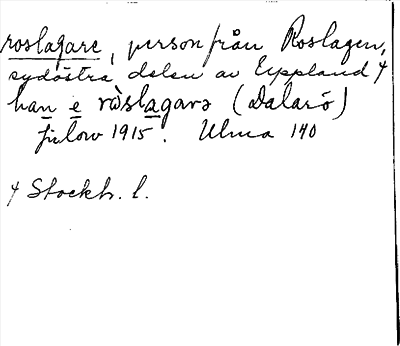 roslagare, person från Roslagen,
sydöstra delen av Uppland &
han e ròslagarə (Dalarö)
Julow 1915. Ulma 140
& Stockh. l.